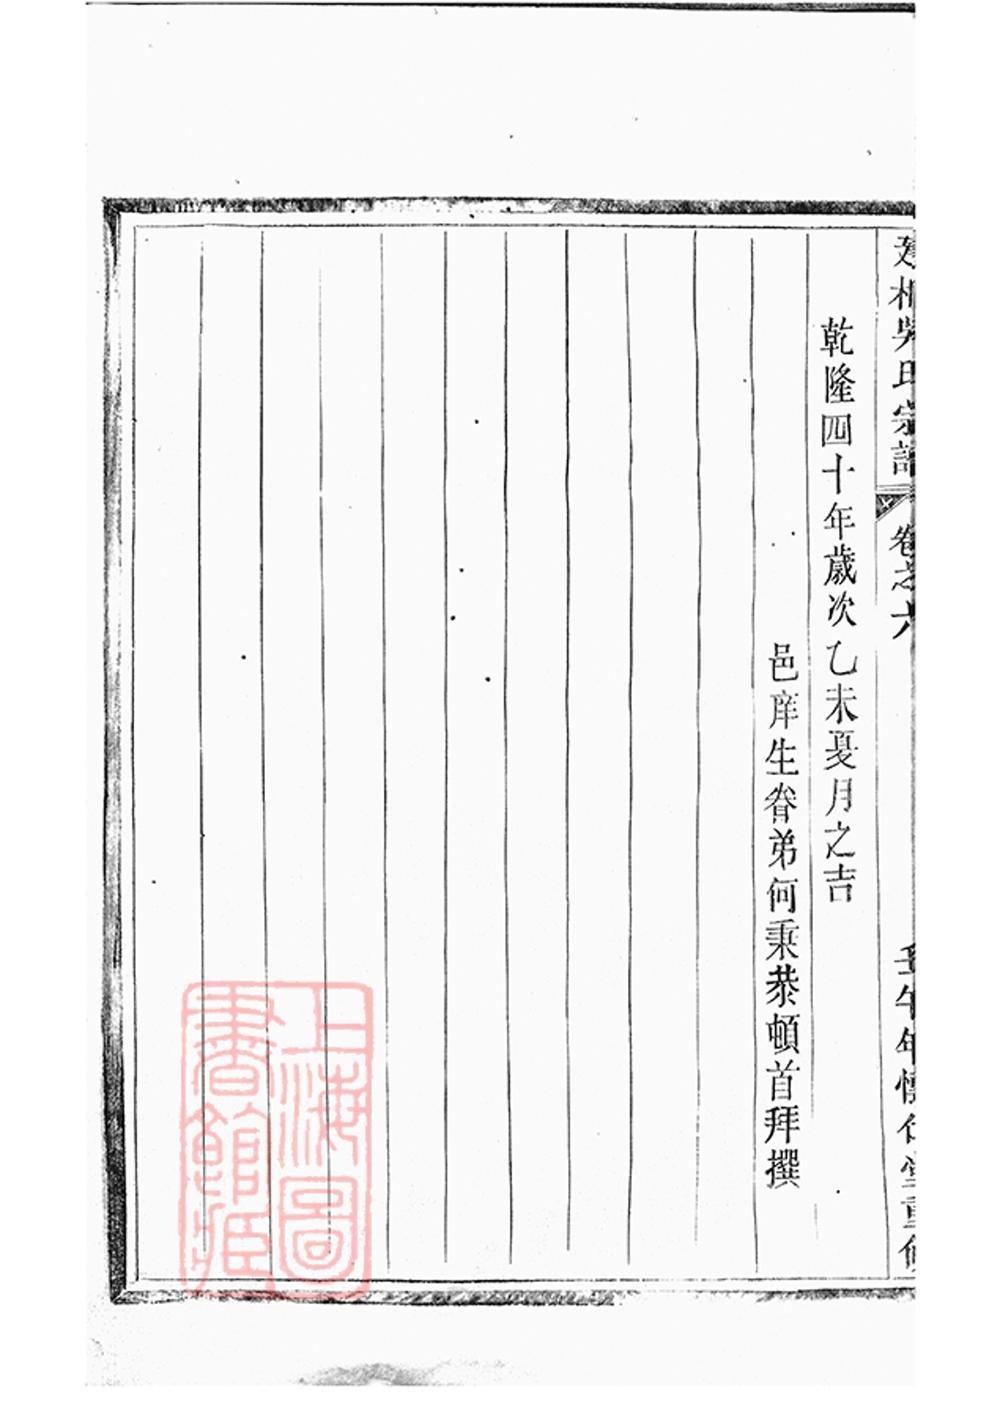 吳氏宗譜 卷之六 壬午年懷仁堂重修
乾隆四十年歲次乙未夏月之吉
邑庠生眷弟何秉恭頓首拜撰
上海圖書館藏